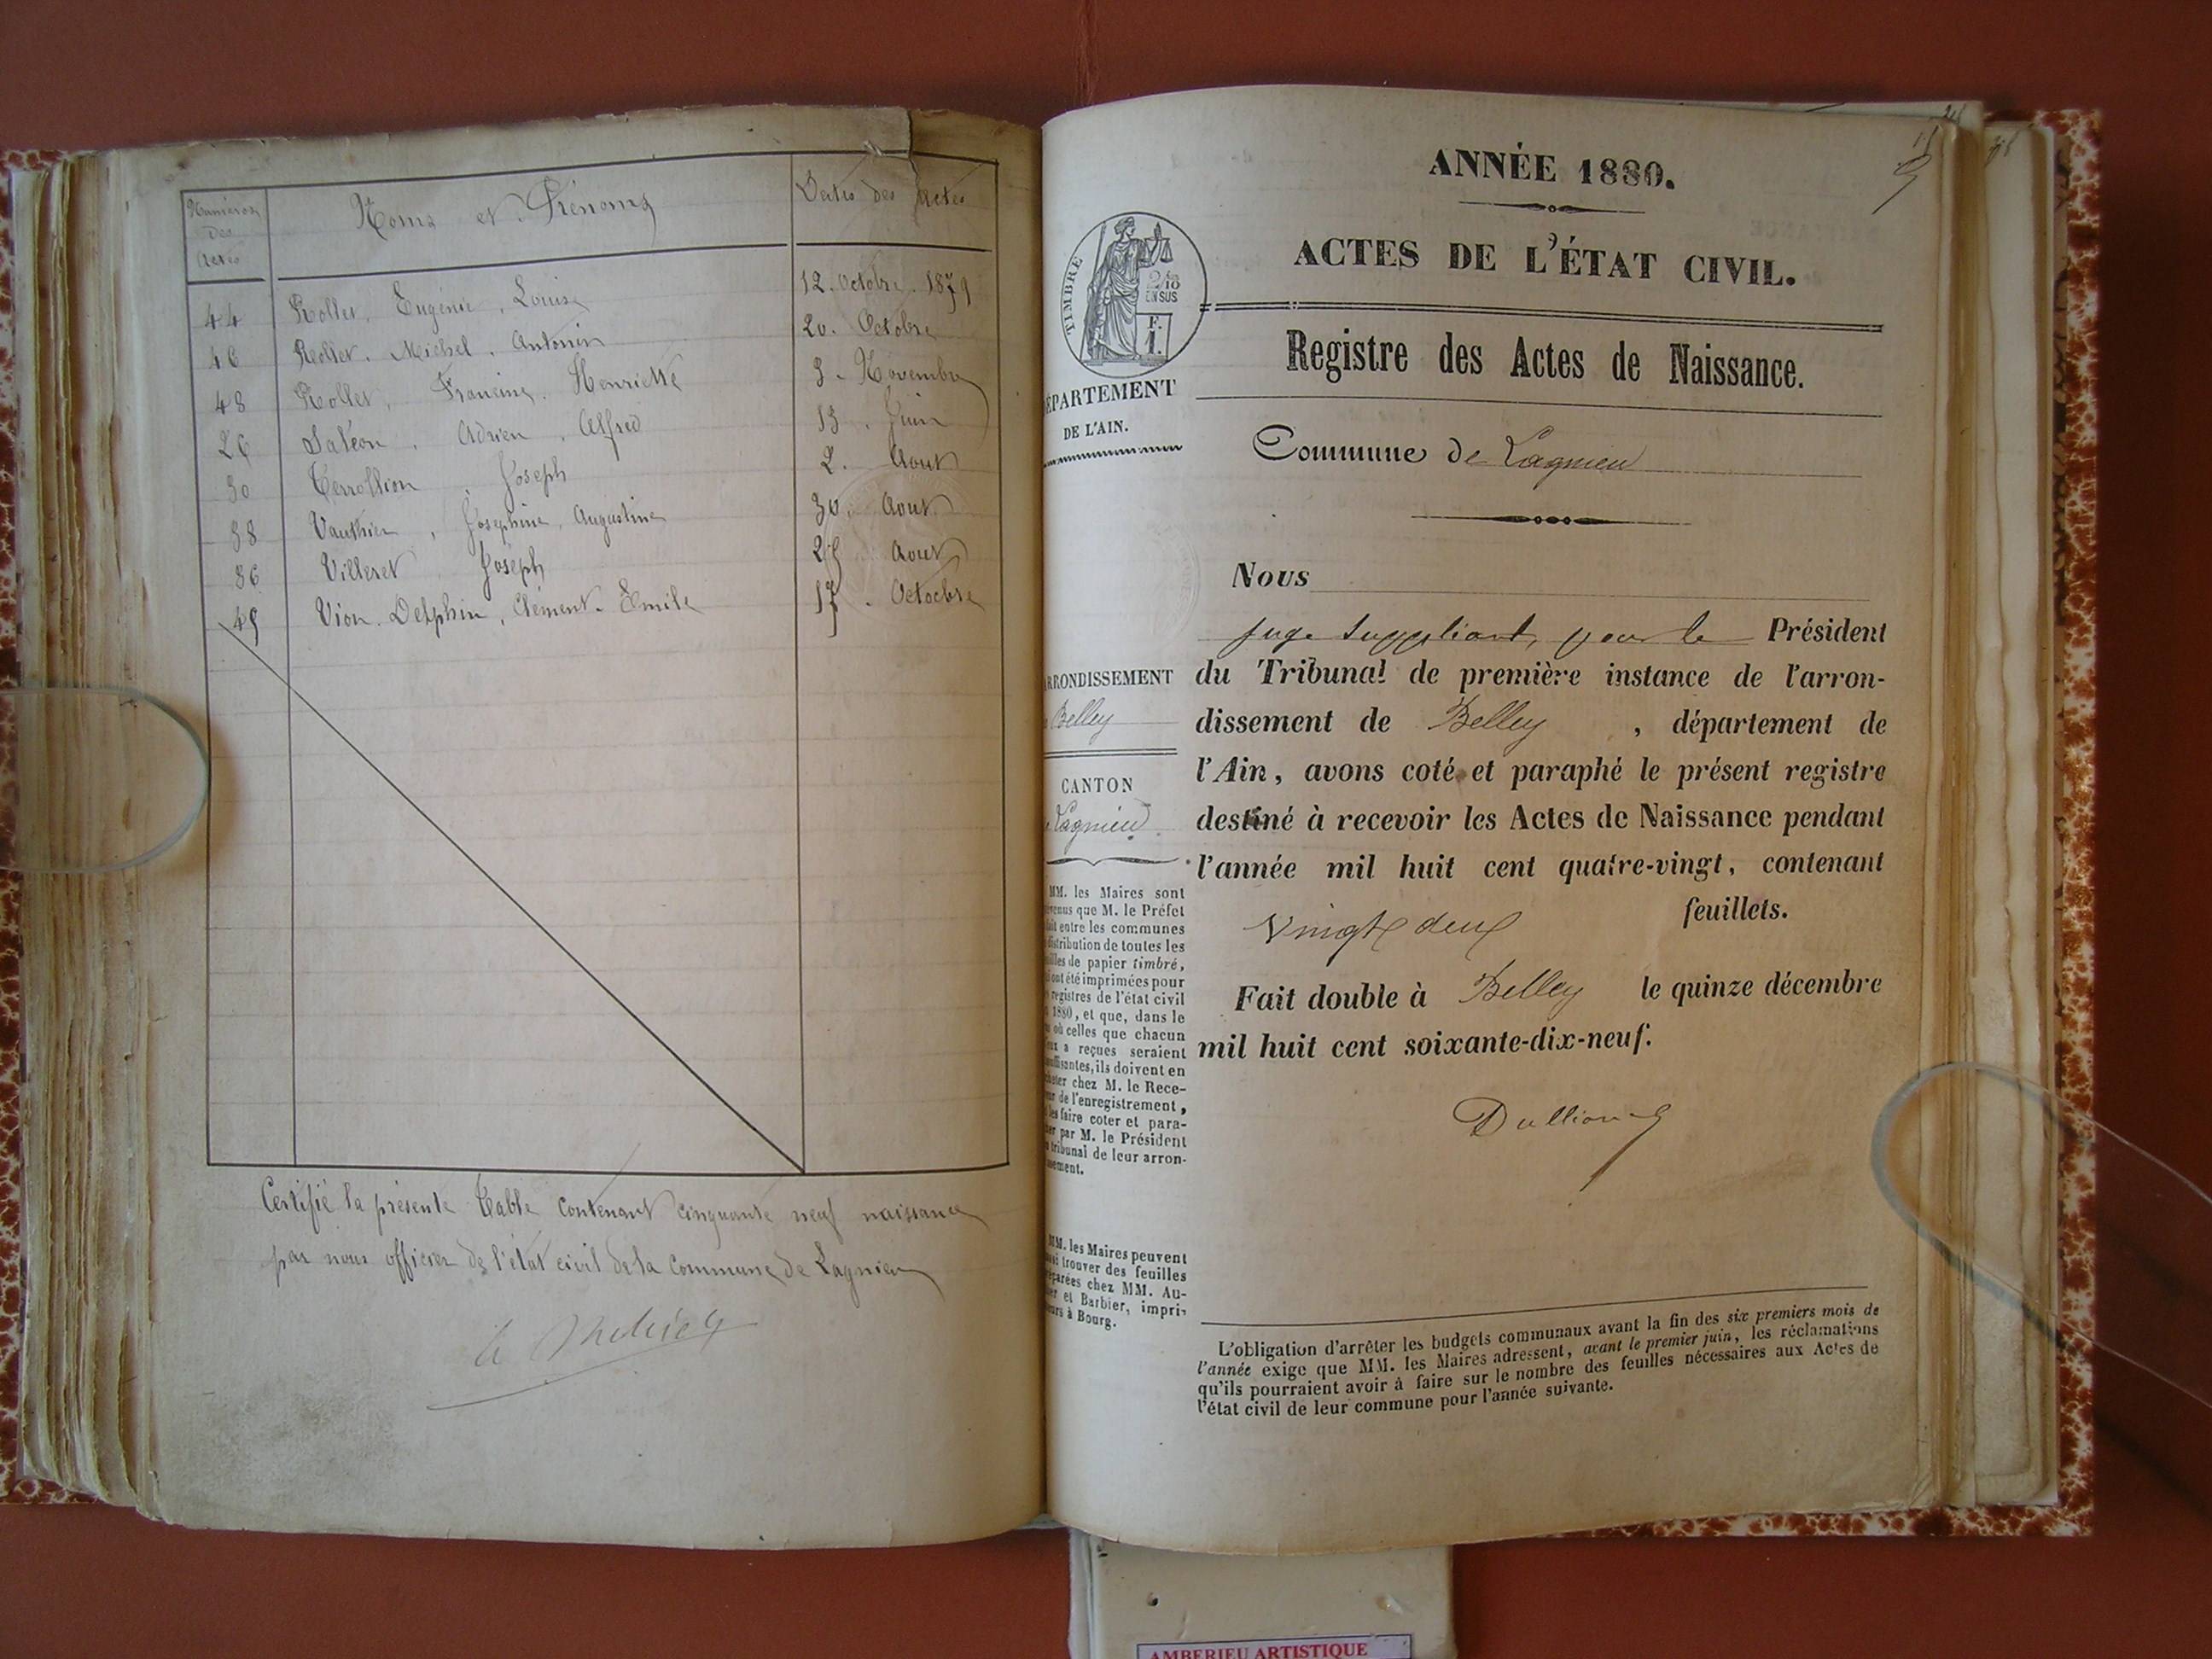 Numéros des Actes
Noms et Prénoms
Dates des Actes
44 Rollet, Eugénie, Louise 12. Octobre. 1879
46 Rollet. Michel. Antonin 20. Octobre
48 Rollet, Francine. Henriette 3. Novembre
26 Adrien, Alfred 13. Juin
30 Joseph 2. Aout
38 Vauthier, Joséphine, Augustine 30. Aout
36 Villeret Joseph Aout
45 Vion. Delphin, Clément. Emile 17. Octocbre
Certifié la présente Table contenant cinquante neuf naissance
par nous officier de l'état civil de la Commune de Lagnieu
ANNÉE 1880.
ACTES DE L'ÉTAT CIVIL.
TIMBRE
2/10
EN SUS
F.
1.
DÉPARTEMENT
DE L'AIN.
Registre des Actes de Naissance.
Commune de Lagnieu
Nous
juge suppléant, pour le Président
du Tribunal de première instance de l'arron-
dissement de Belley , département de
l'Ain, avons coté et paraphé le présent registre
destiné à recevoir les Actes de Naissance pendant
l'année mil huit cent quatre-vingt, contenant
vingt deux feuillets.
Fait double à Belley le quinze décembre
mil huit cent soixante-dix-neuf.
ARRONDISSEMENT
Belley
CANTON
Lagnieu
MM. les Maires sont
que M. le Préfet
entre les communes
distribution de toutes les
de papier timbré,
ont été imprimées pour
registres de l'état civil
1880, et que, dans le
où celles que chacun
a reçues seraient
ils doivent en
chez M. le Rece-
de l'enregistrement,
faire coter et para-
par M. le Président
tribunal de leur arron-
MM. les Maires peuvent
trouver des feuilles
chez MM. Au-
et Barbier, impri-
à Bourg.
L'obligation d'arrêter les budgets communaux avant la fin des six premiers mois de
l'année exige que MM. les Maires adressent, avant le premier juin, les réclamations
qu'ils pourraient avoir à faire sur le nombre des feuilles nécessaires aux Actes de
l'état civil de leur commune pour l'année suivante.
AMBERIEU ARTISTIQUE